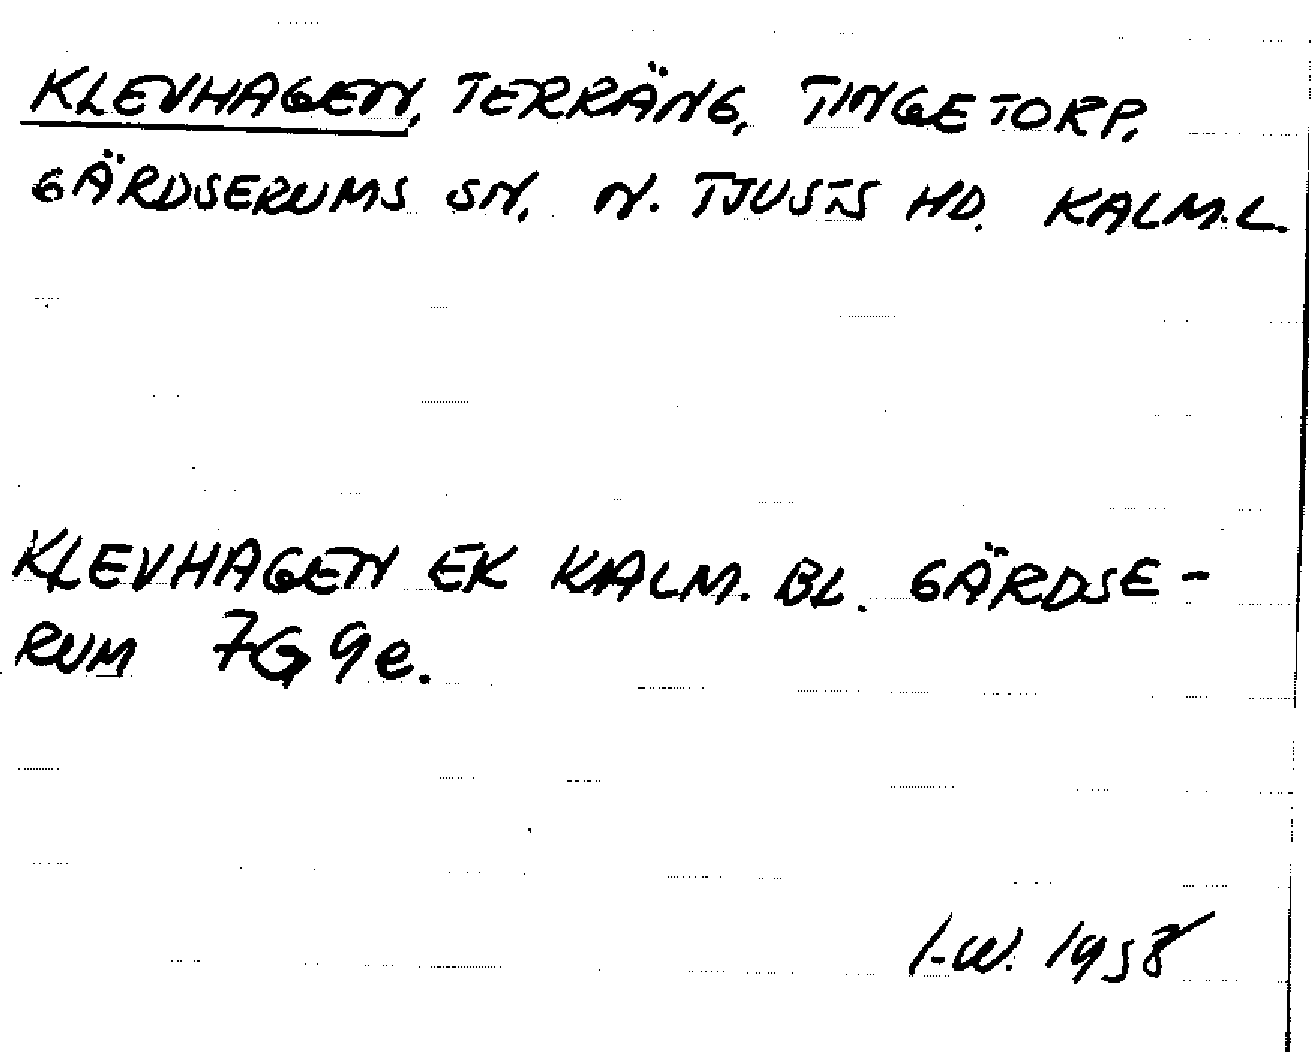 KLEVHAGEN, TERRÄNG, TINGETORP,
GÄRDSERUMS SN. N. TJUSTS HD. KALM.L.
KLEVHAGEN EK KALM. BL. GÄRDSE-
RUM 7G 9e.
I-W. 1958